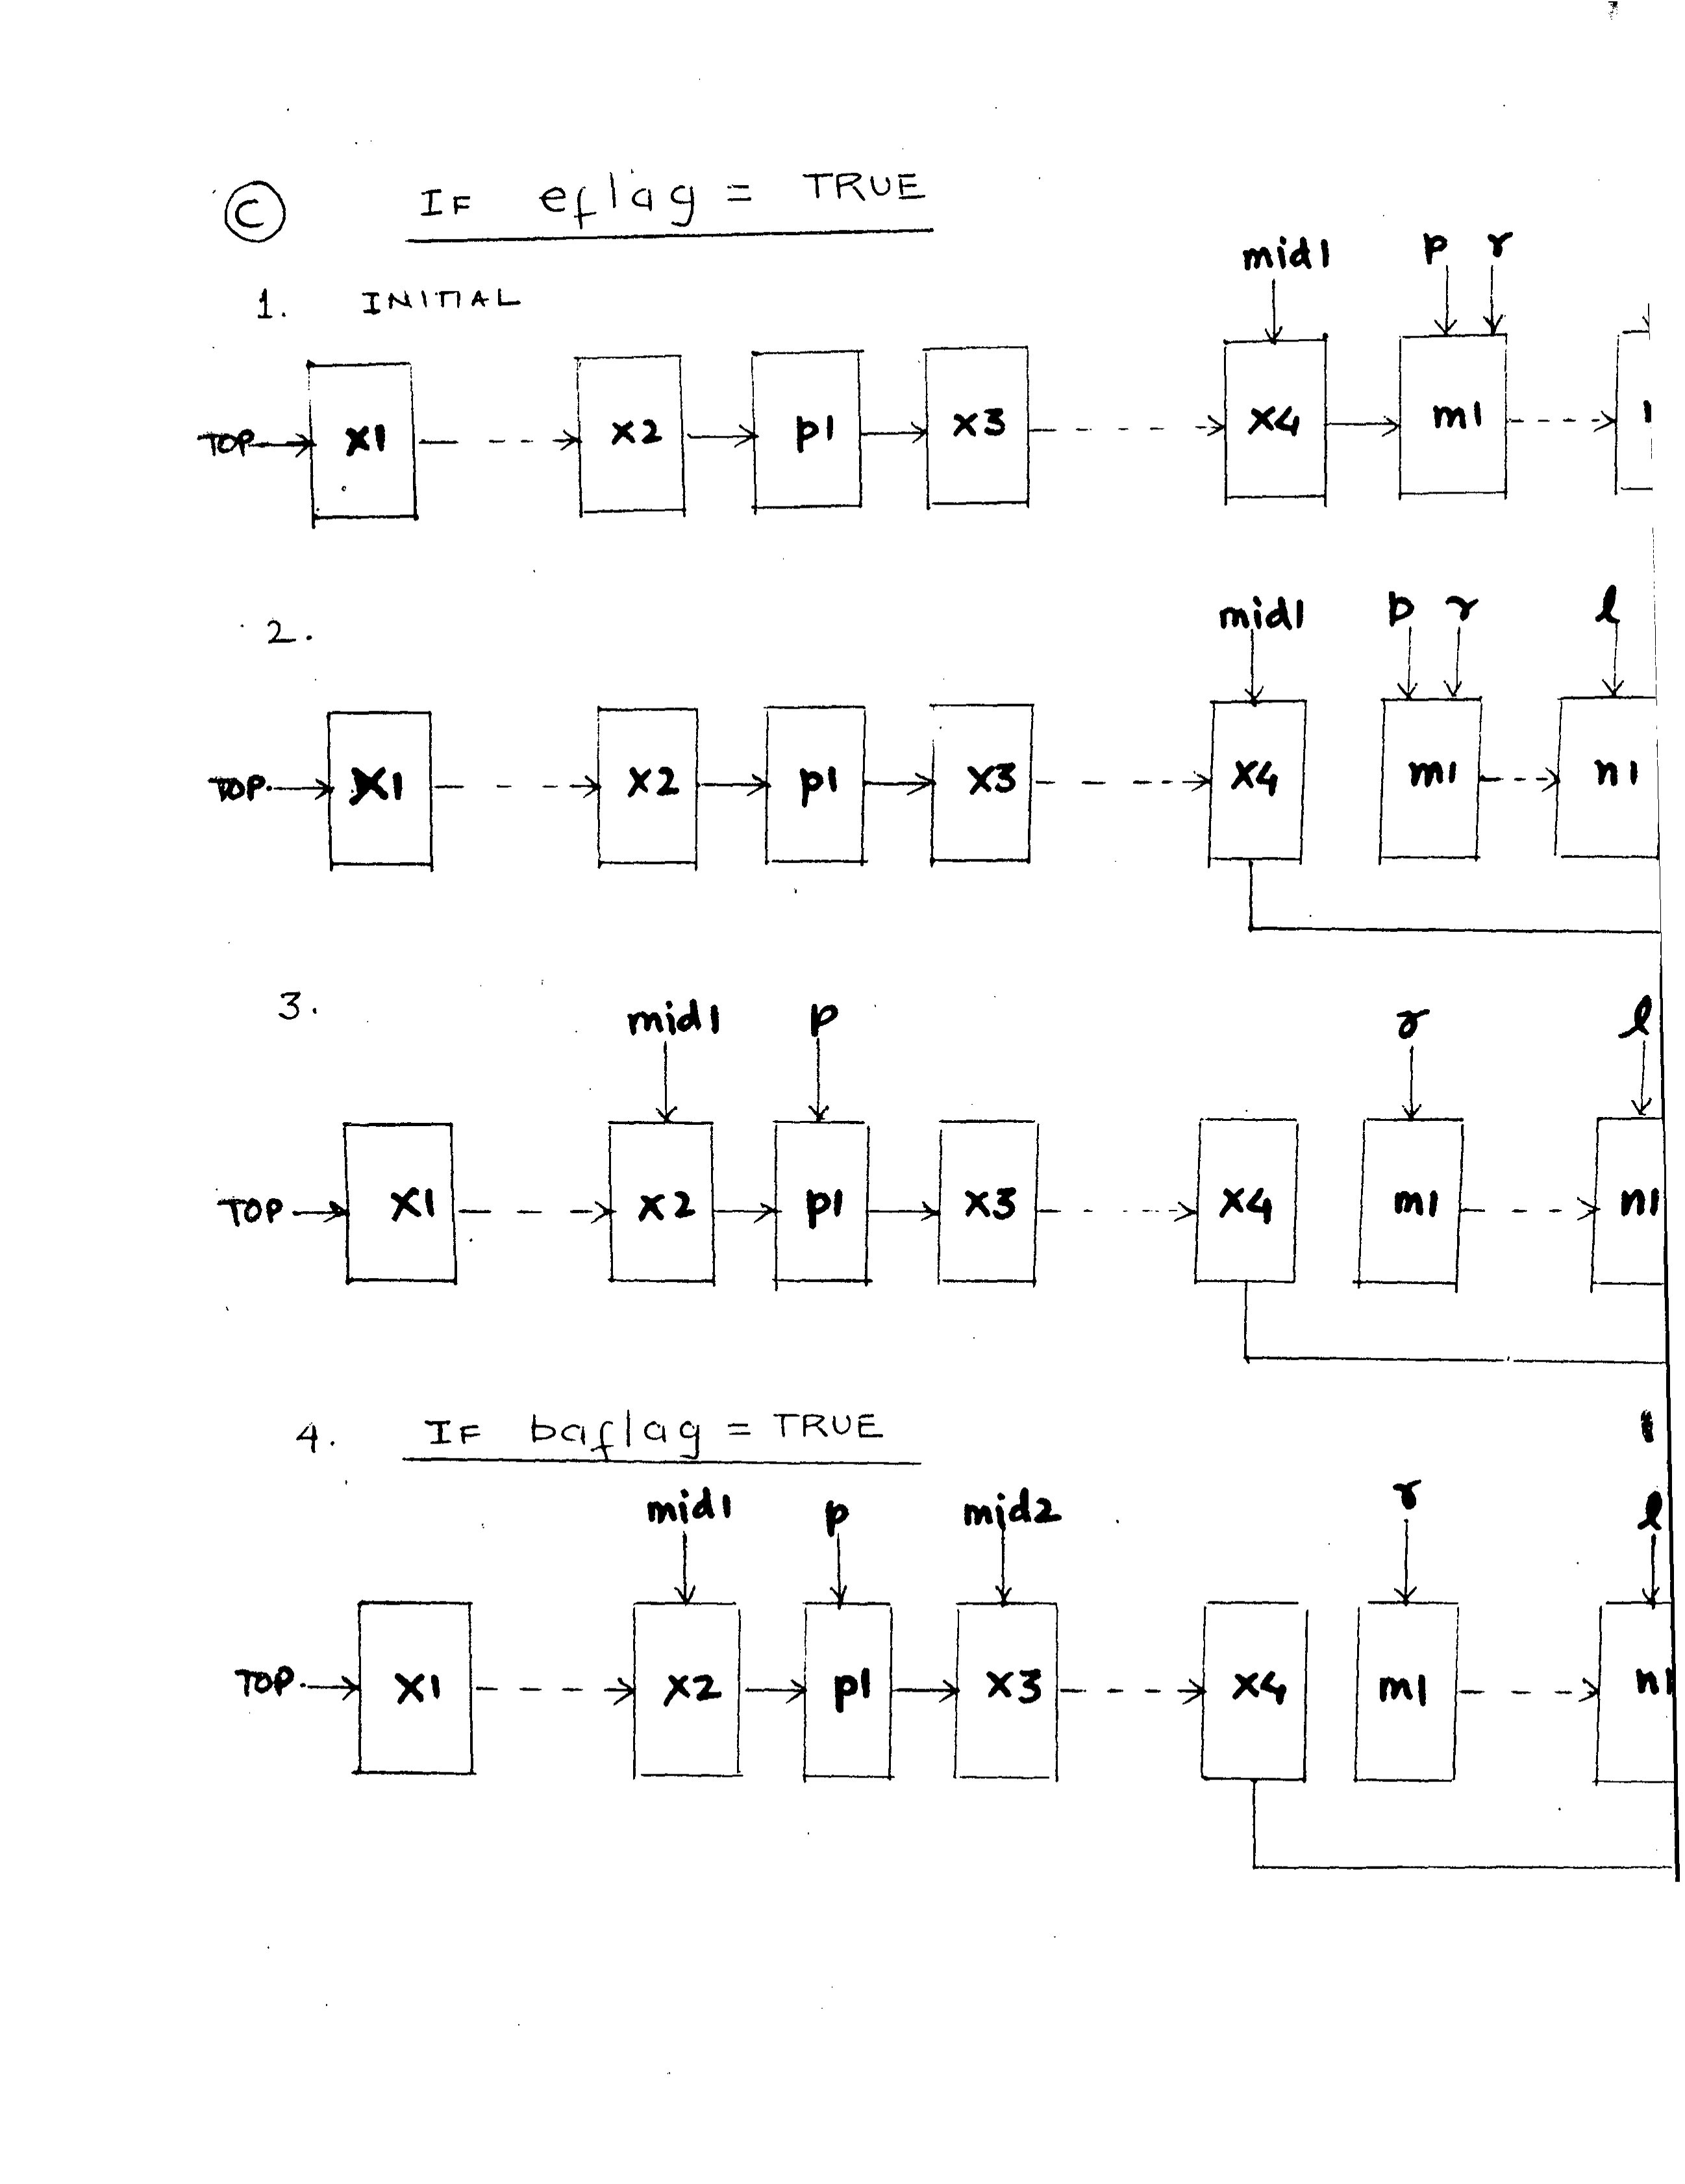 C IF eflag = TRUE
1. INITIAL
mid1 p r
TOP x1 x2 p1 x3 x4 m1
2.
mid1 p r l
TOP x1 x2 p1 x3 x4 m1 n1
3.
mid1 p r l
TOP x1 x2 p1 x3 x4 m1 n1
4. IF baflag = TRUE
mid1 p mid2 r l
TOP x1 x2 p1 x3 x4 m1 n1